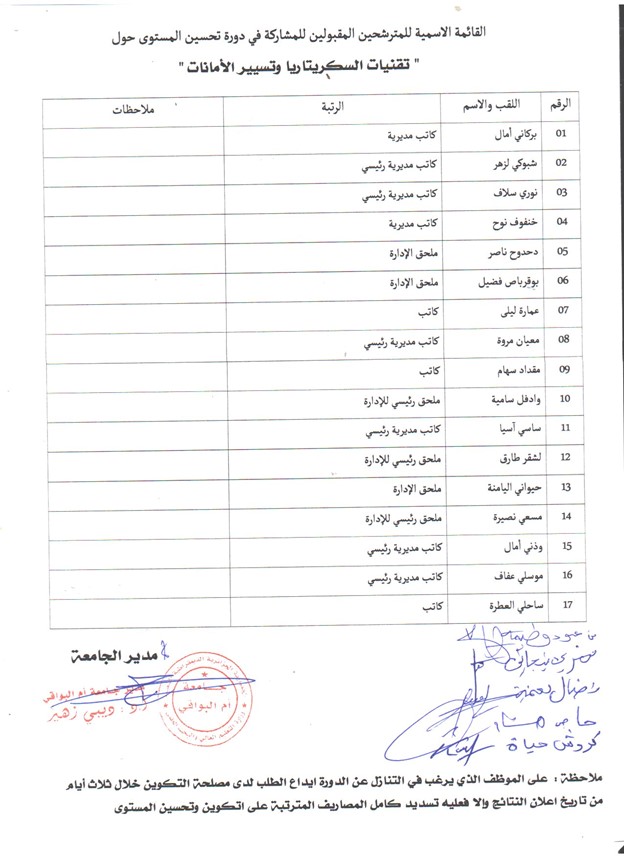 القائمة الاسمية للمترشحين المقبولين للمشاركة في دورة تحسين المستوى حول
" تقنيات السكريتاريا وتسيير الأمانات "
الرقم اللقب والاسم الرتبة ملاحظات
01 بركاني أمال كاتب مديرية
02 شبوكي لزهر كاتب مديرية رئيسي
03 نوري سلاف كاتب مديرية رئيسي
04 خنفوف نوح كاتب مديرية
05 دحدوح ناصر ملحق الإدارة
06 بوقرباص فضيل ملحق الإدارة
07 عمارة ليلى كاتب
08 معيان مروة كاتب مديرية رئيسي
09 مقداد سهام كاتب
10 وادفل سامية ملحق رئيسي للإدارة
11 ساسي آسيا كاتب مديرية رئيسي
12 لشقر طارق ملحق رئيسي للإدارة
13 حيواني اليامنة ملحق الإدارة
14 مسعي نصيرة ملحق رئيسي للإدارة
15 وذني أمال كاتب مديرية رئيسي
16 موسلي عفاف كاتب مديرية رئيسي
17 ساحلي العطرة كاتب
مدير الجامعة
جامعة أم البواقي
ديبي زهير
جامعة
أم البواقي
كروش حياة
ملاحظة : على الموظف الذي يرغب في التنازل عن الدورة ايداع الطلب لدى مصلحة التكوين خلال ثلاث أيام
من تاريخ اعلان النتائج وإلا فعليه تسديد كامل المصاريف المترتبة على اتكوين وتحسين المستوى